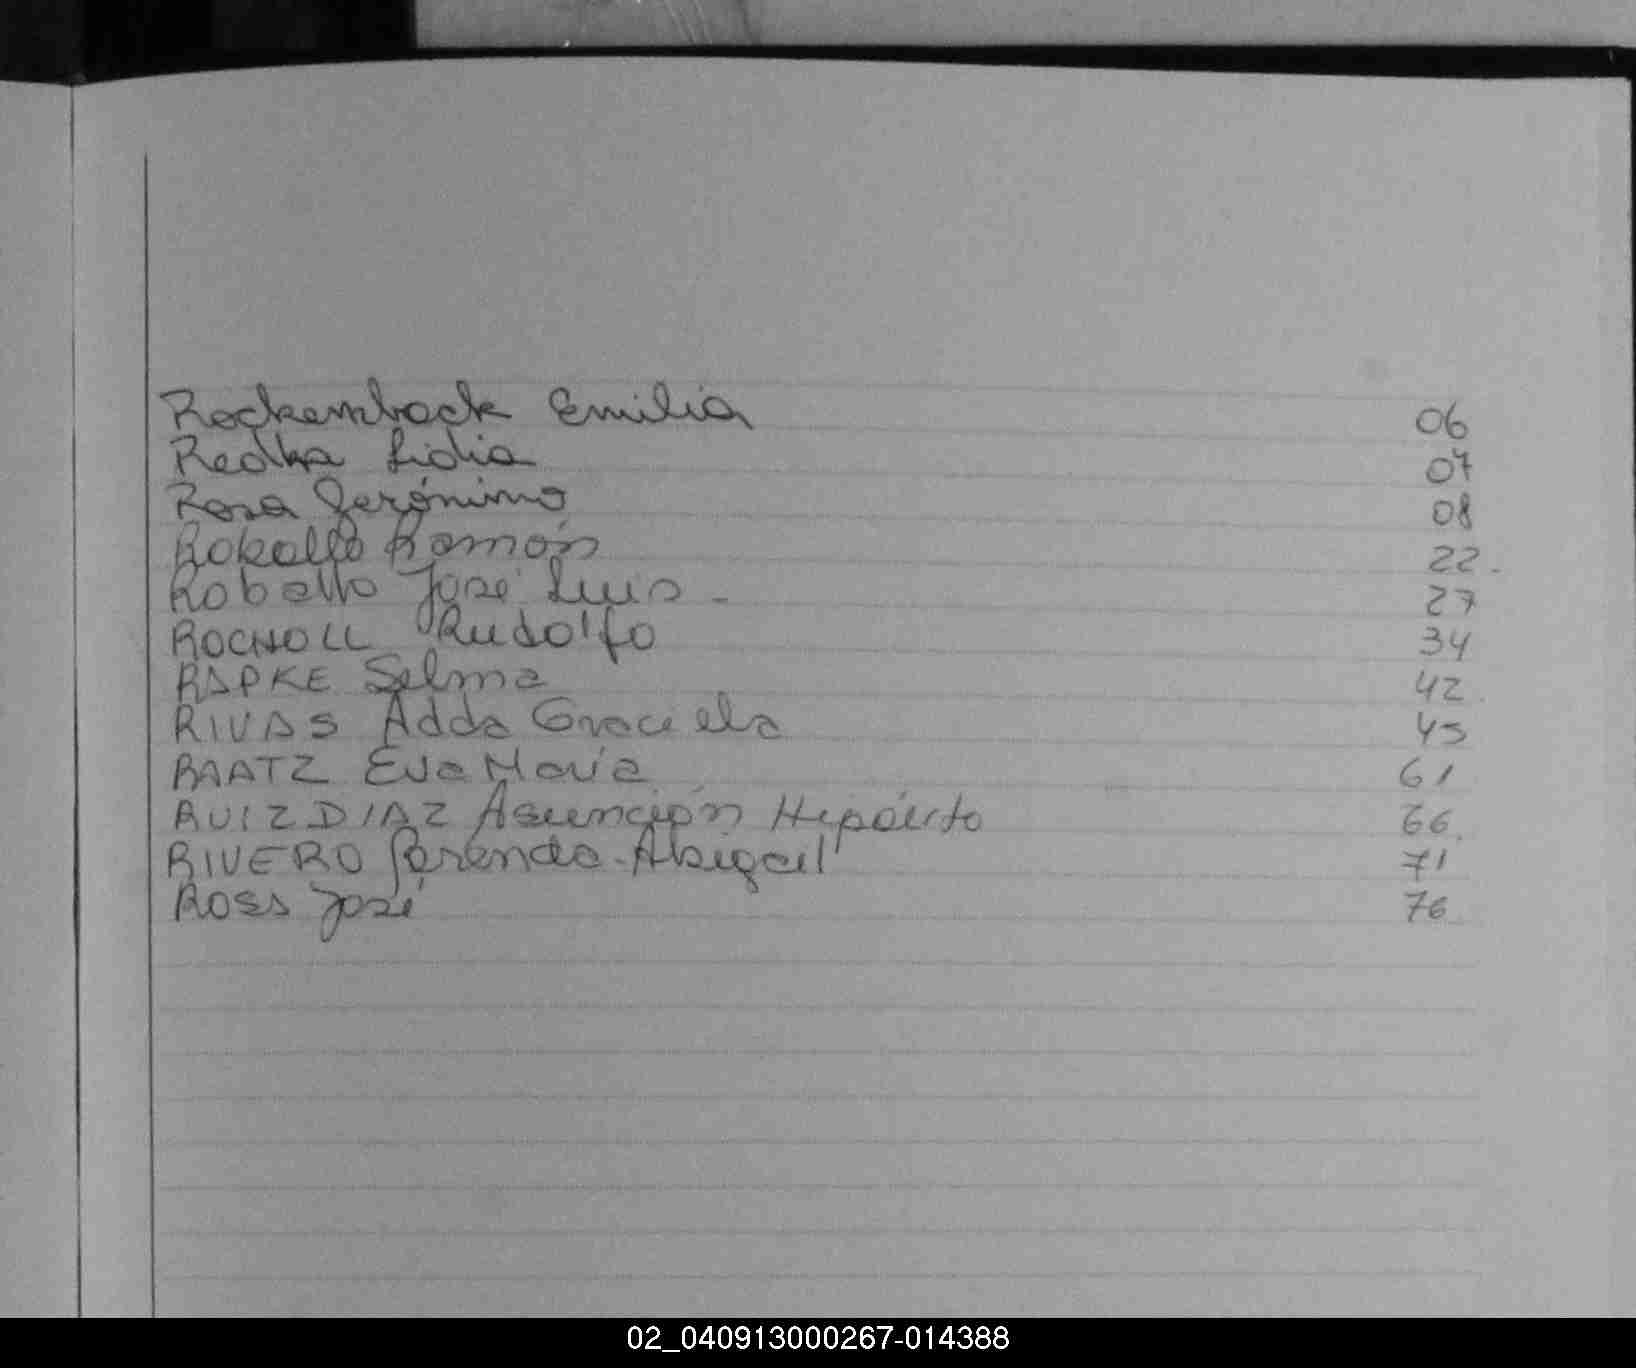 Rockemback Emilia 06
Redka Lidia 07
Rosa Gerónimo 08
Roballo Ramón 22.
Roballo José Luis - 27
ROCHOLL Rudolfo 34
RAPKE Selma 42.
RIVAS Adda Graciela 45
RAATZ Eva María 61
RUIZ DIAZ Asunción Hipólito 66.
RIVERO Abigail 71
ROSS José 76
02_040913000267-014388